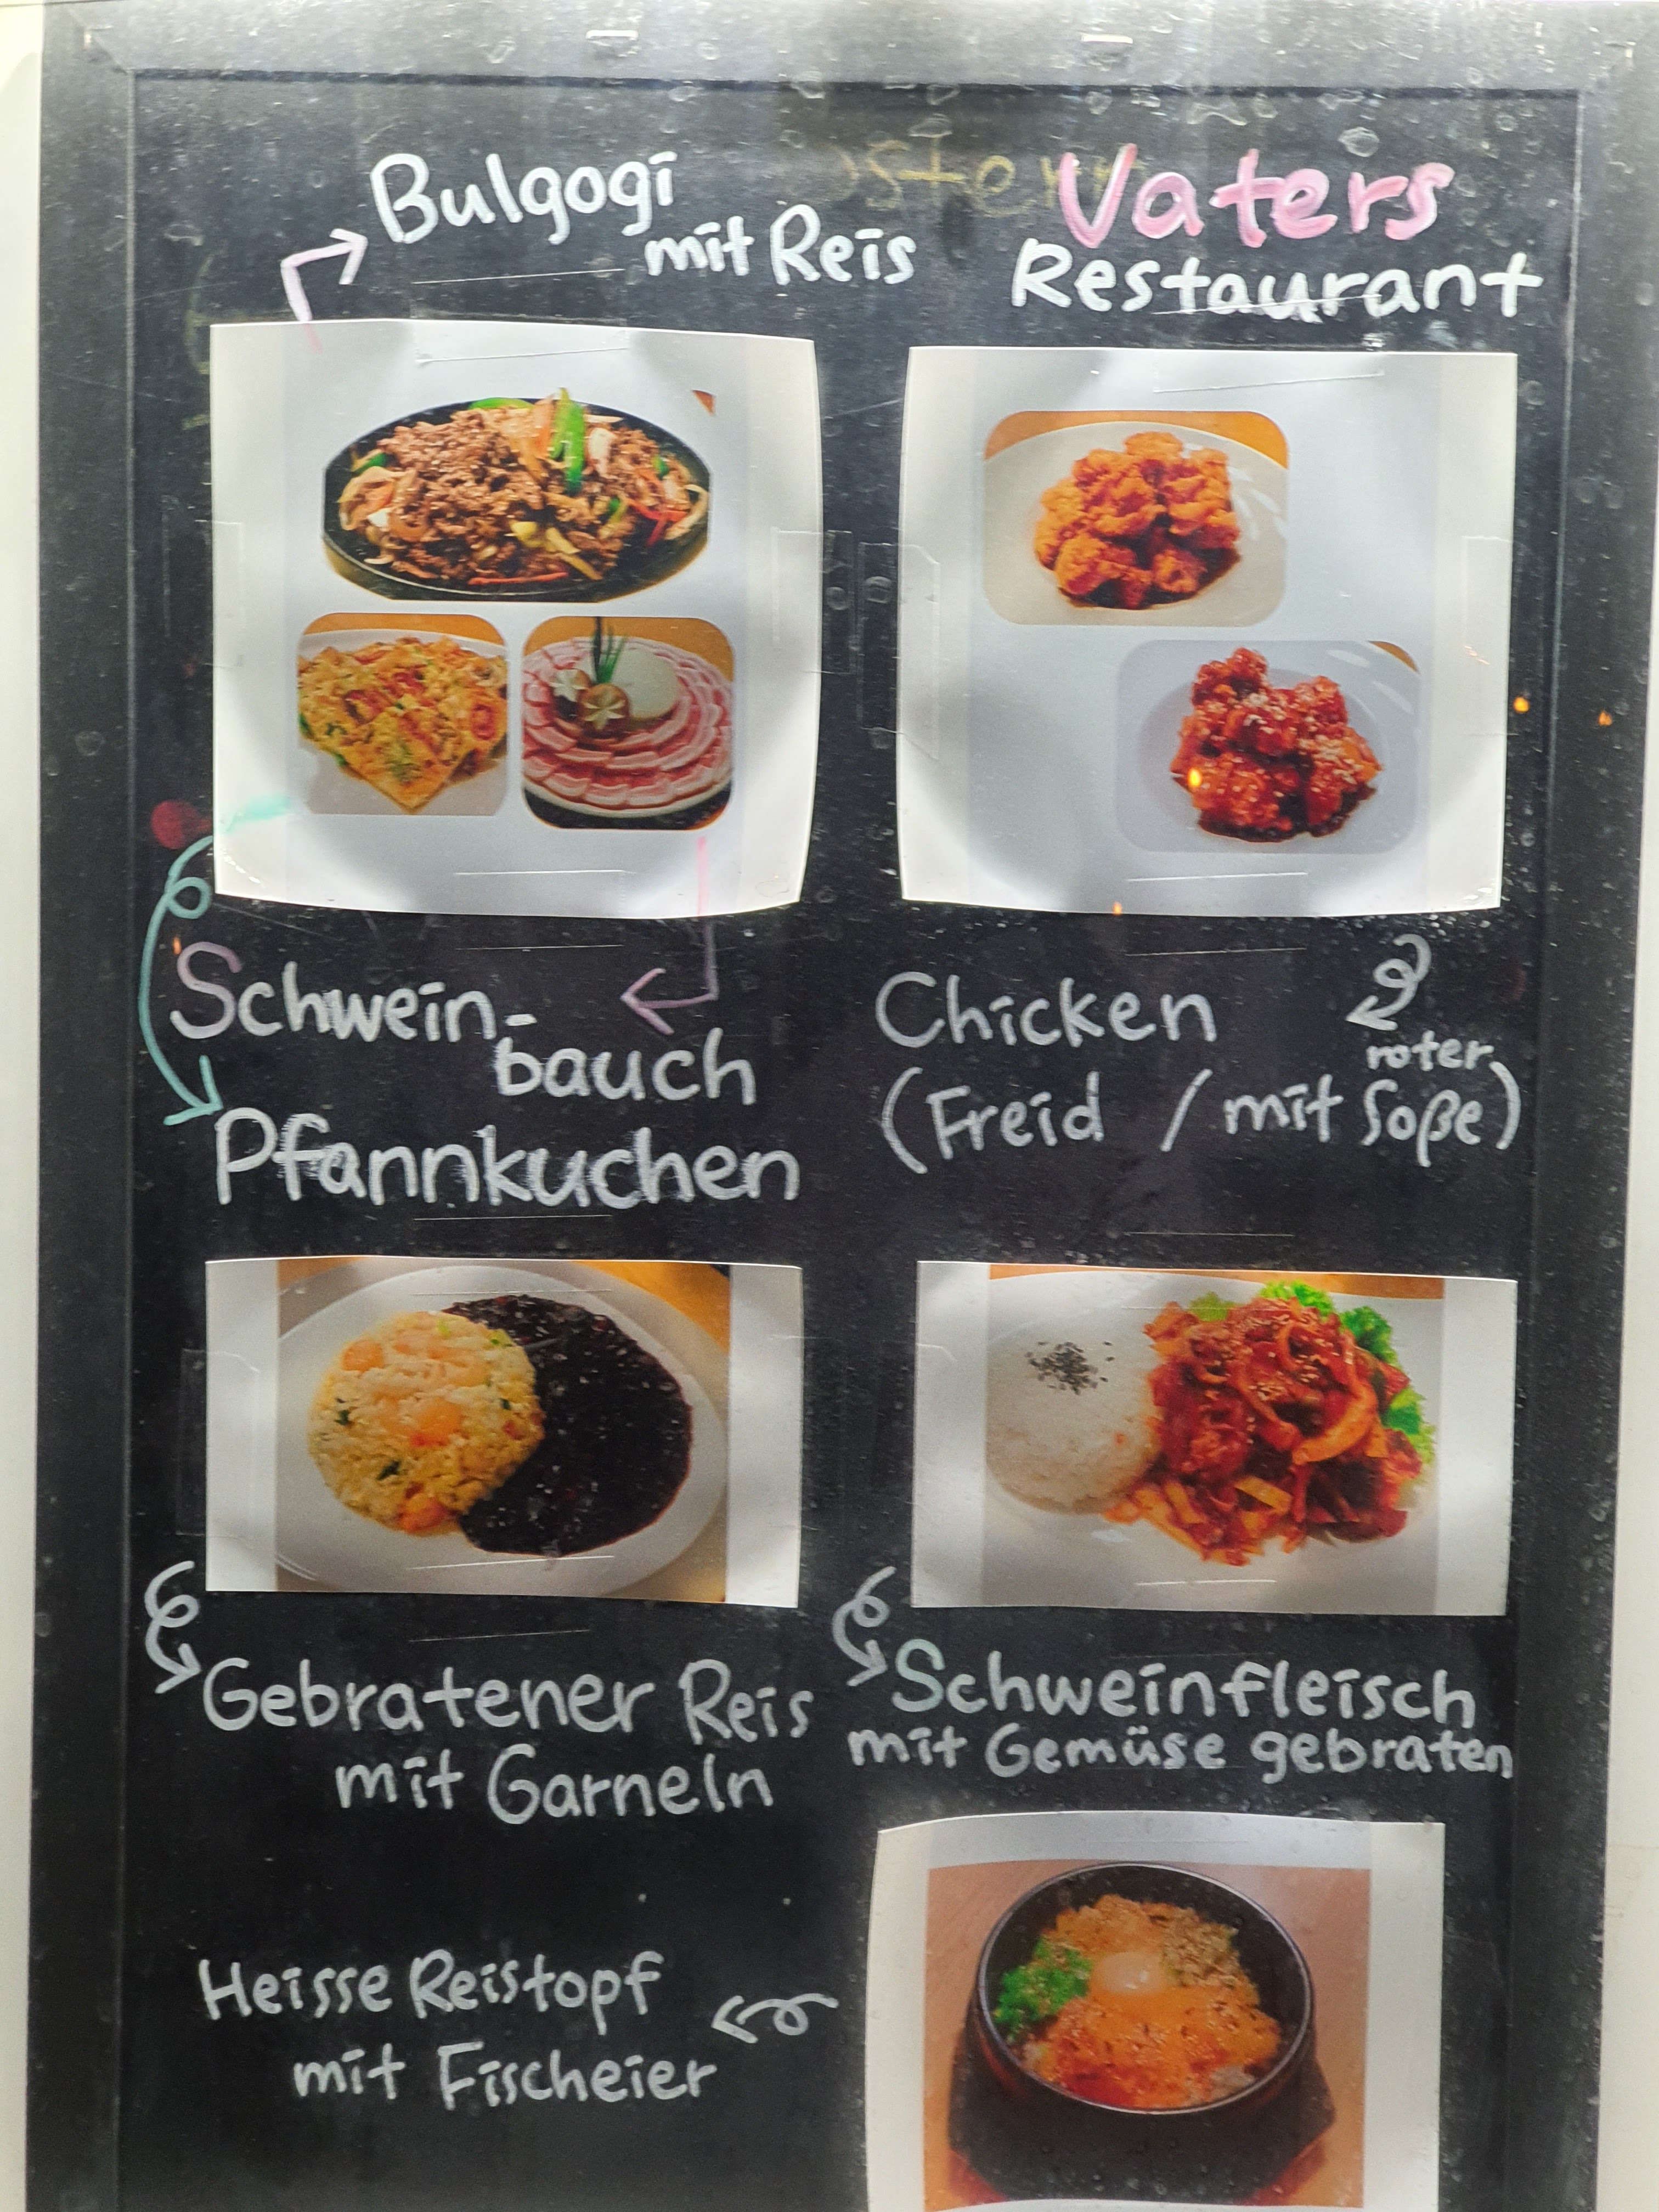 Bulgogi
mit Reis
Vaters
Restaurant
Schwein-
bauch
Pfannkuchen
Chicken
roter
(Freid / mit Soße)
Gebratener Reis
mit Garneln
Schweinfleisch
mit Gemüse gebraten
Heisse Reistopf
mit Fischeier